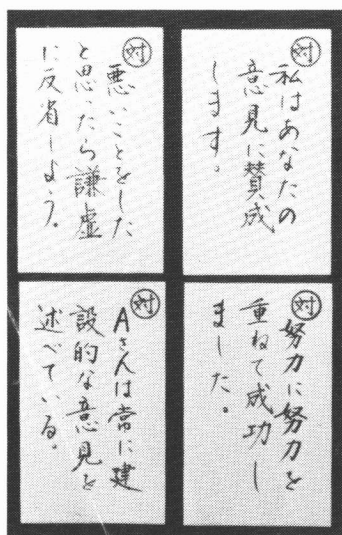 対
私はあなたの
意見に賛成
します。
対
悪いことをした
と思ったら謙虚
に反省しよう。
対
努力に努力を
重ねて成功し
ました。
対
Aさんは常に建
設的な意見を
述べている。